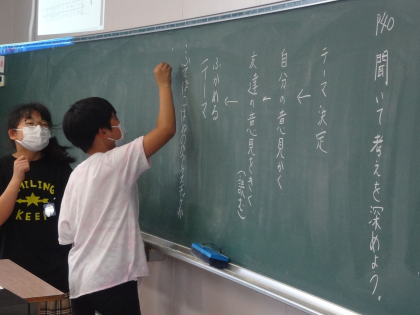 P40 聞いて考えを深めよう。
テーマ決定
↓
自分の意見かく
↓
友達の意見をきく(読む)
↓
ふかめる
テーマ
SMILING
KEEP